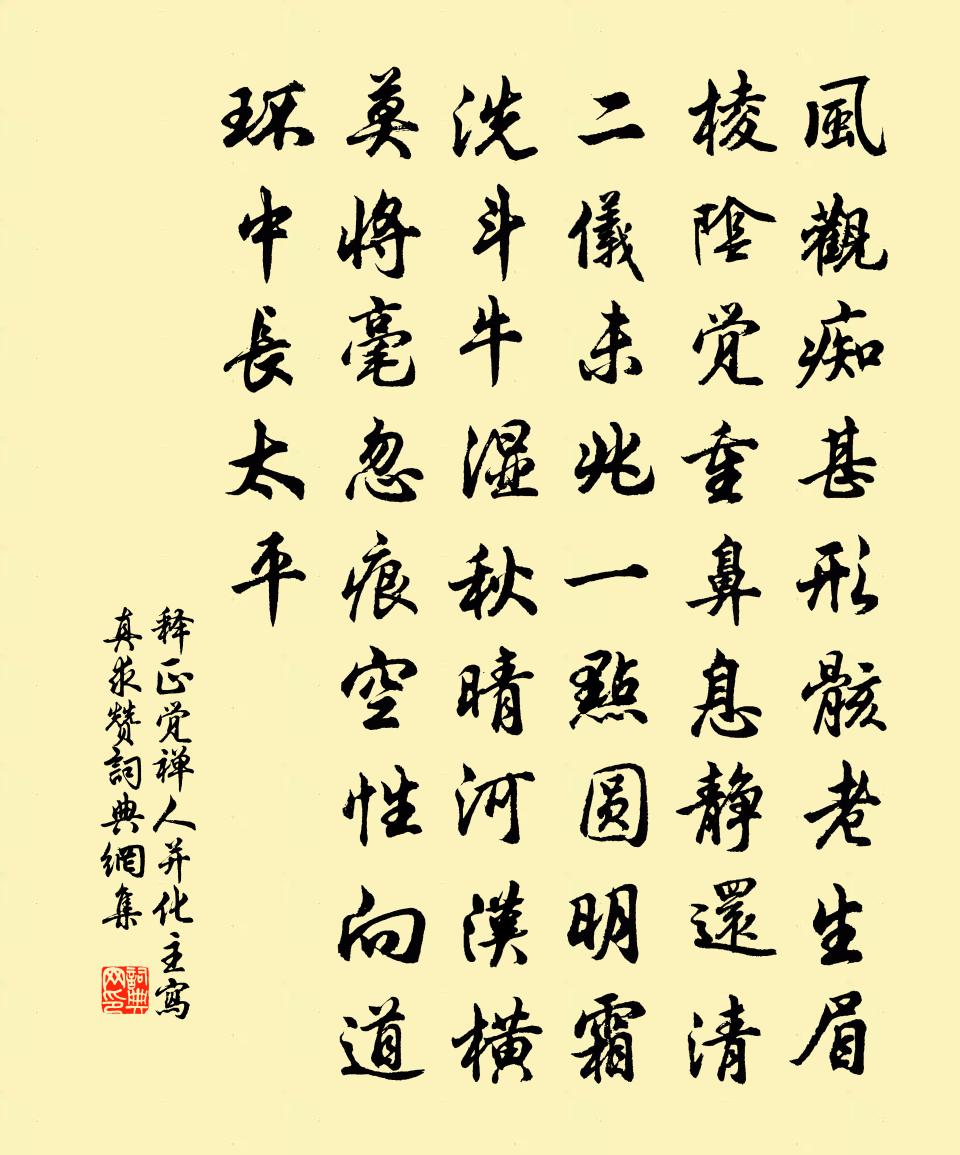 風觀痴甚形骸老生眉
棱陰觉重鼻息静還清
二儀未兆一點圆明霜
洗斗牛湿秋晴河漢橫
莫將毫忽痕空性向道
环中長太平
释正觉禅人并化主寫
真求赞詞典網集
詞典网印